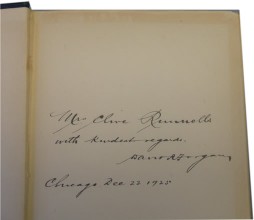 Mr Clive Runnells
with kindest regards,
Chicago Dec 22 1925